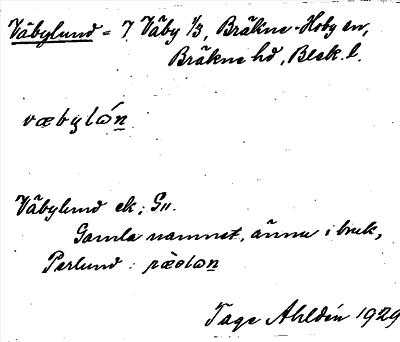 Väbylund = 7 Väby 1/3, Bräkne-Hoby sn,
Bräkne hd, Blek. l.
væbylón
Väbylund ek; G11.
Gamla namnet, ännu i bruk,
Perlund: pæ̀olon
Tage Ahldén 1929